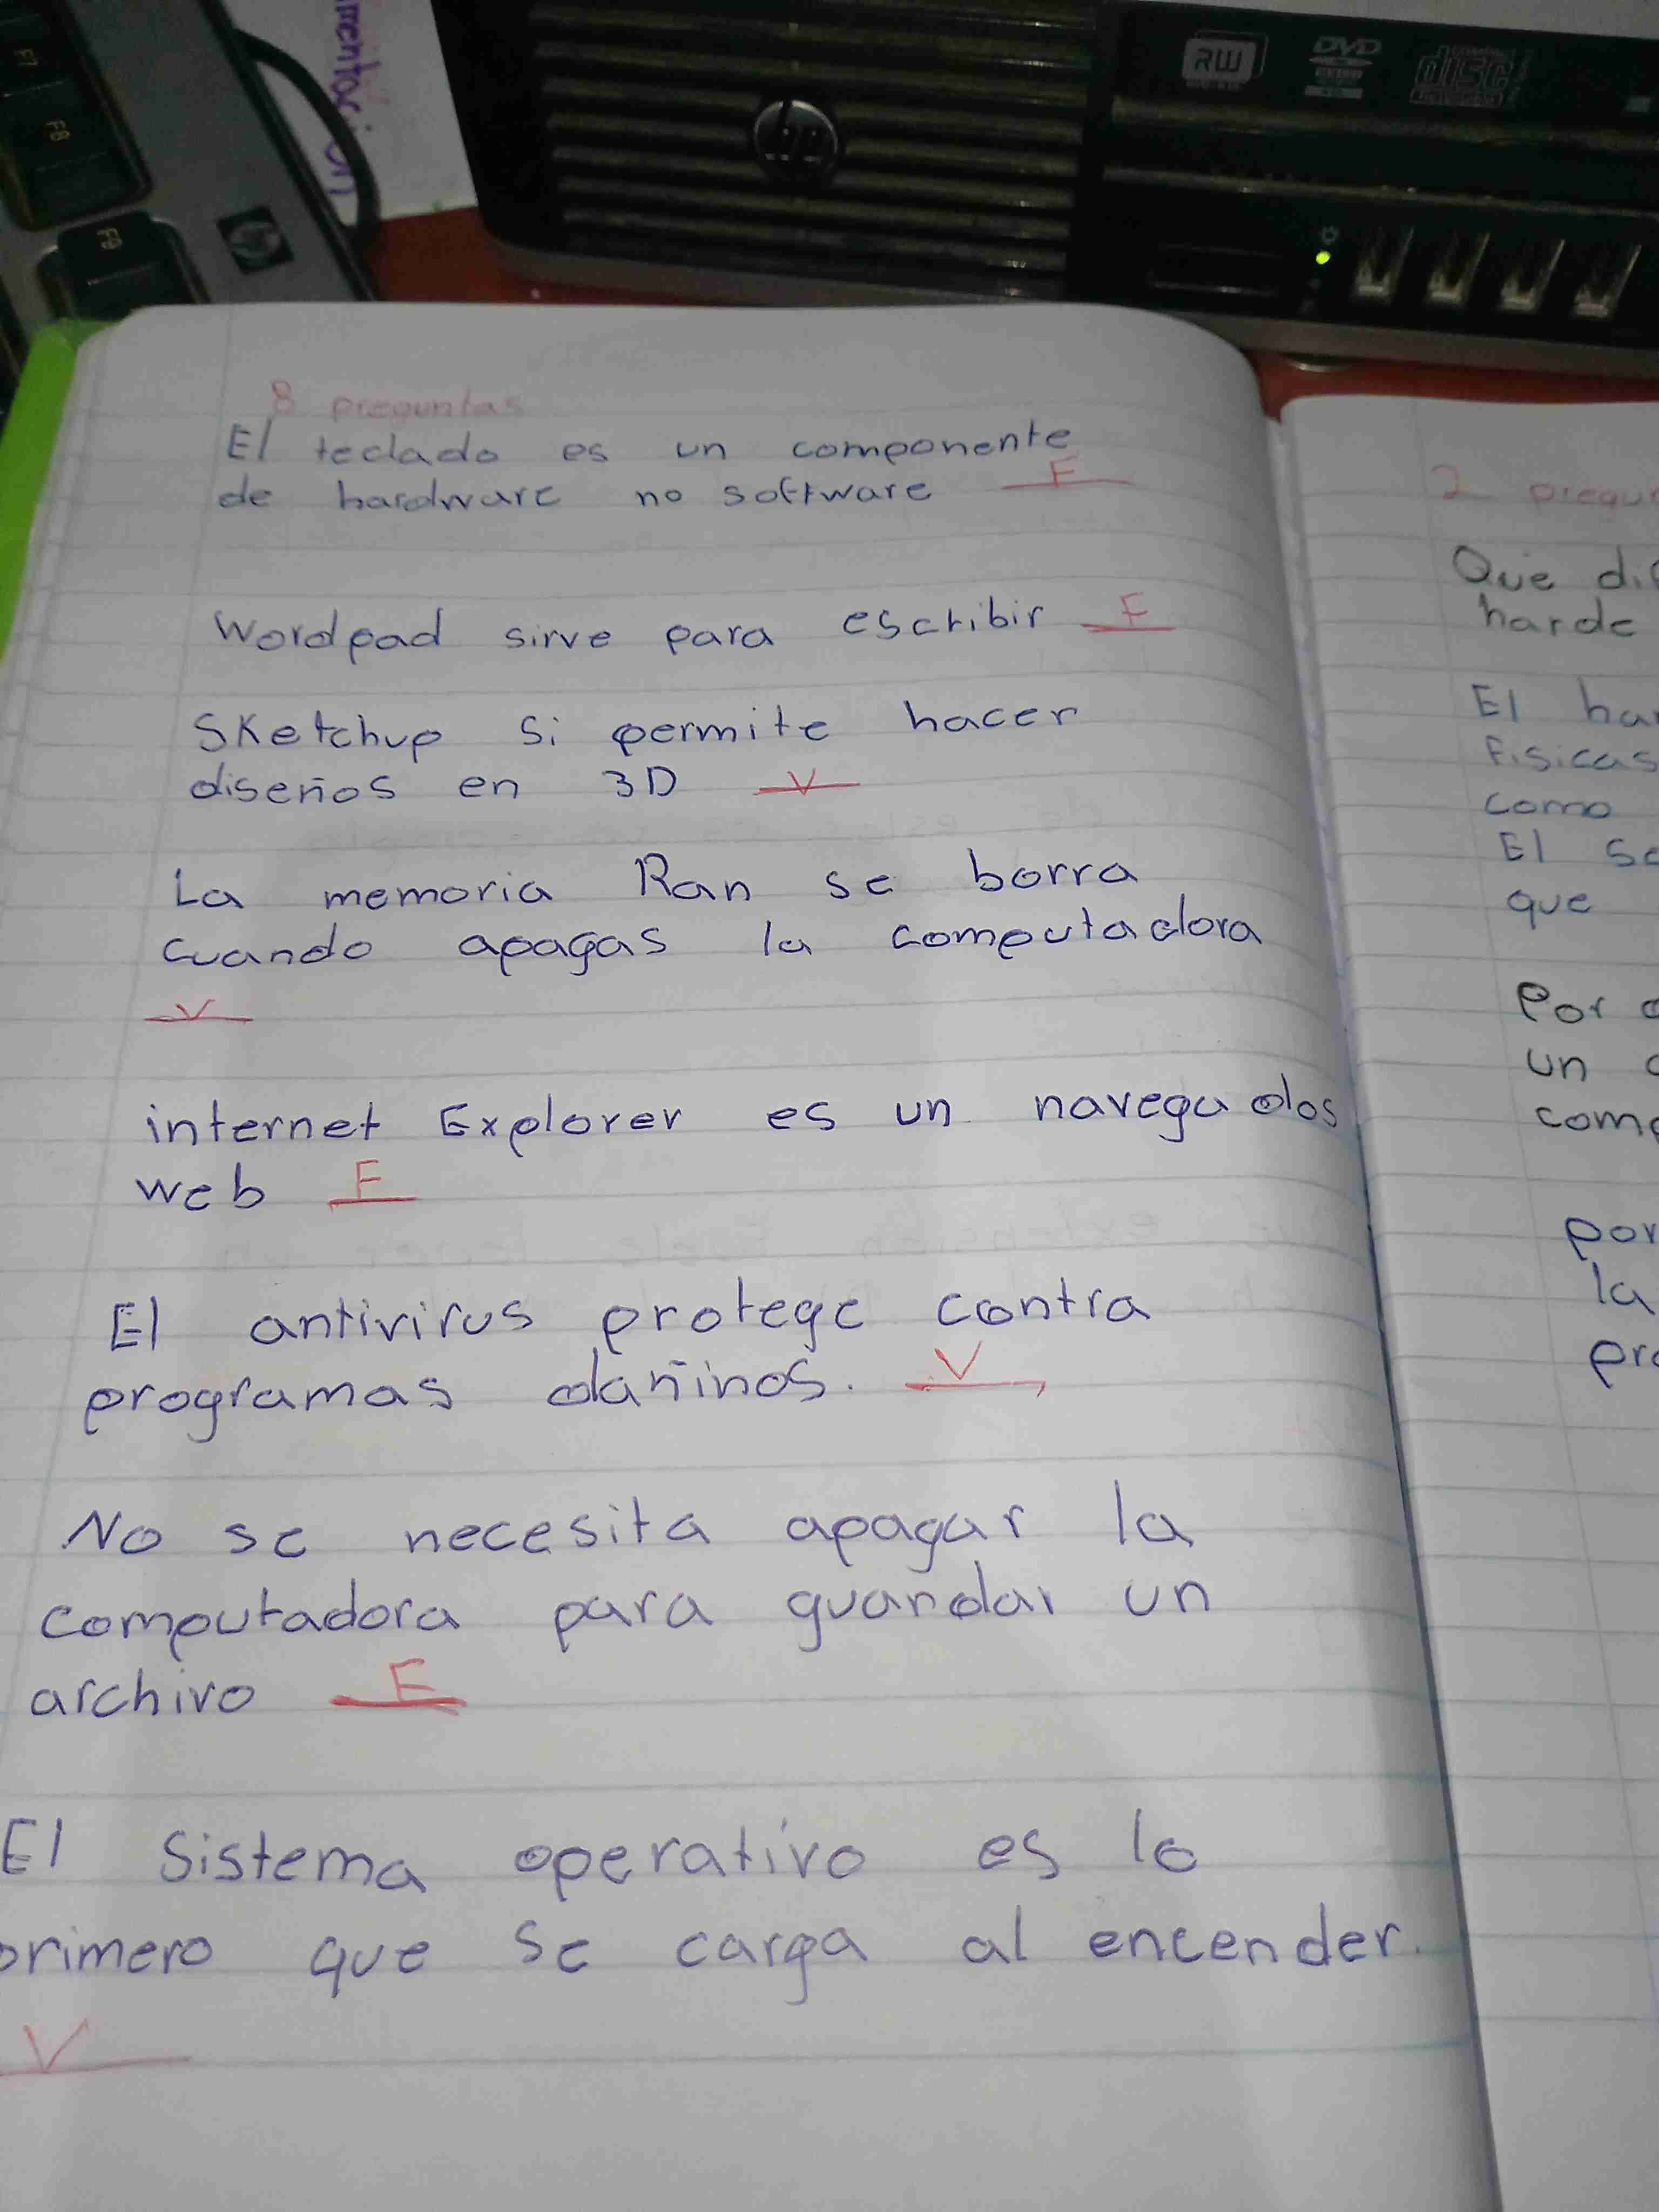 F7
F8
F9
mentación
hp
RW
DVD
disc
8 preguntas
El teclado es un componente
de hardware no software F
Wordpad sirve para escribir F
Sketchup si permite hacer
diseños en 3D V
La memoria Ran se borra
cuando apagas la computadora
V
internet Explorer es un navegados
web F
El antivirus protege contra
programas dañinos. V
No se necesita apagar la
computadora para guardar un
archivo F
El Sistema operativo es lo
primero que se carga al encender.
V
2 pregu
Que dif
harde
El har
Fisicas
como
El so
que
Por
un
comp
por
la
pro